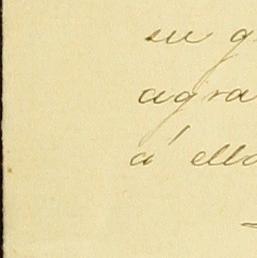 su g
agra
á ello